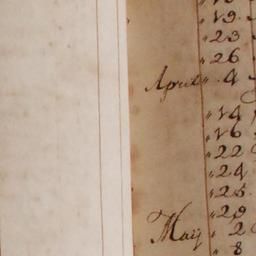 " 19
" 23
" 26
April " 4
" 14
" 16
" 22
" 24
" 25
" 29
May " 2
" 8